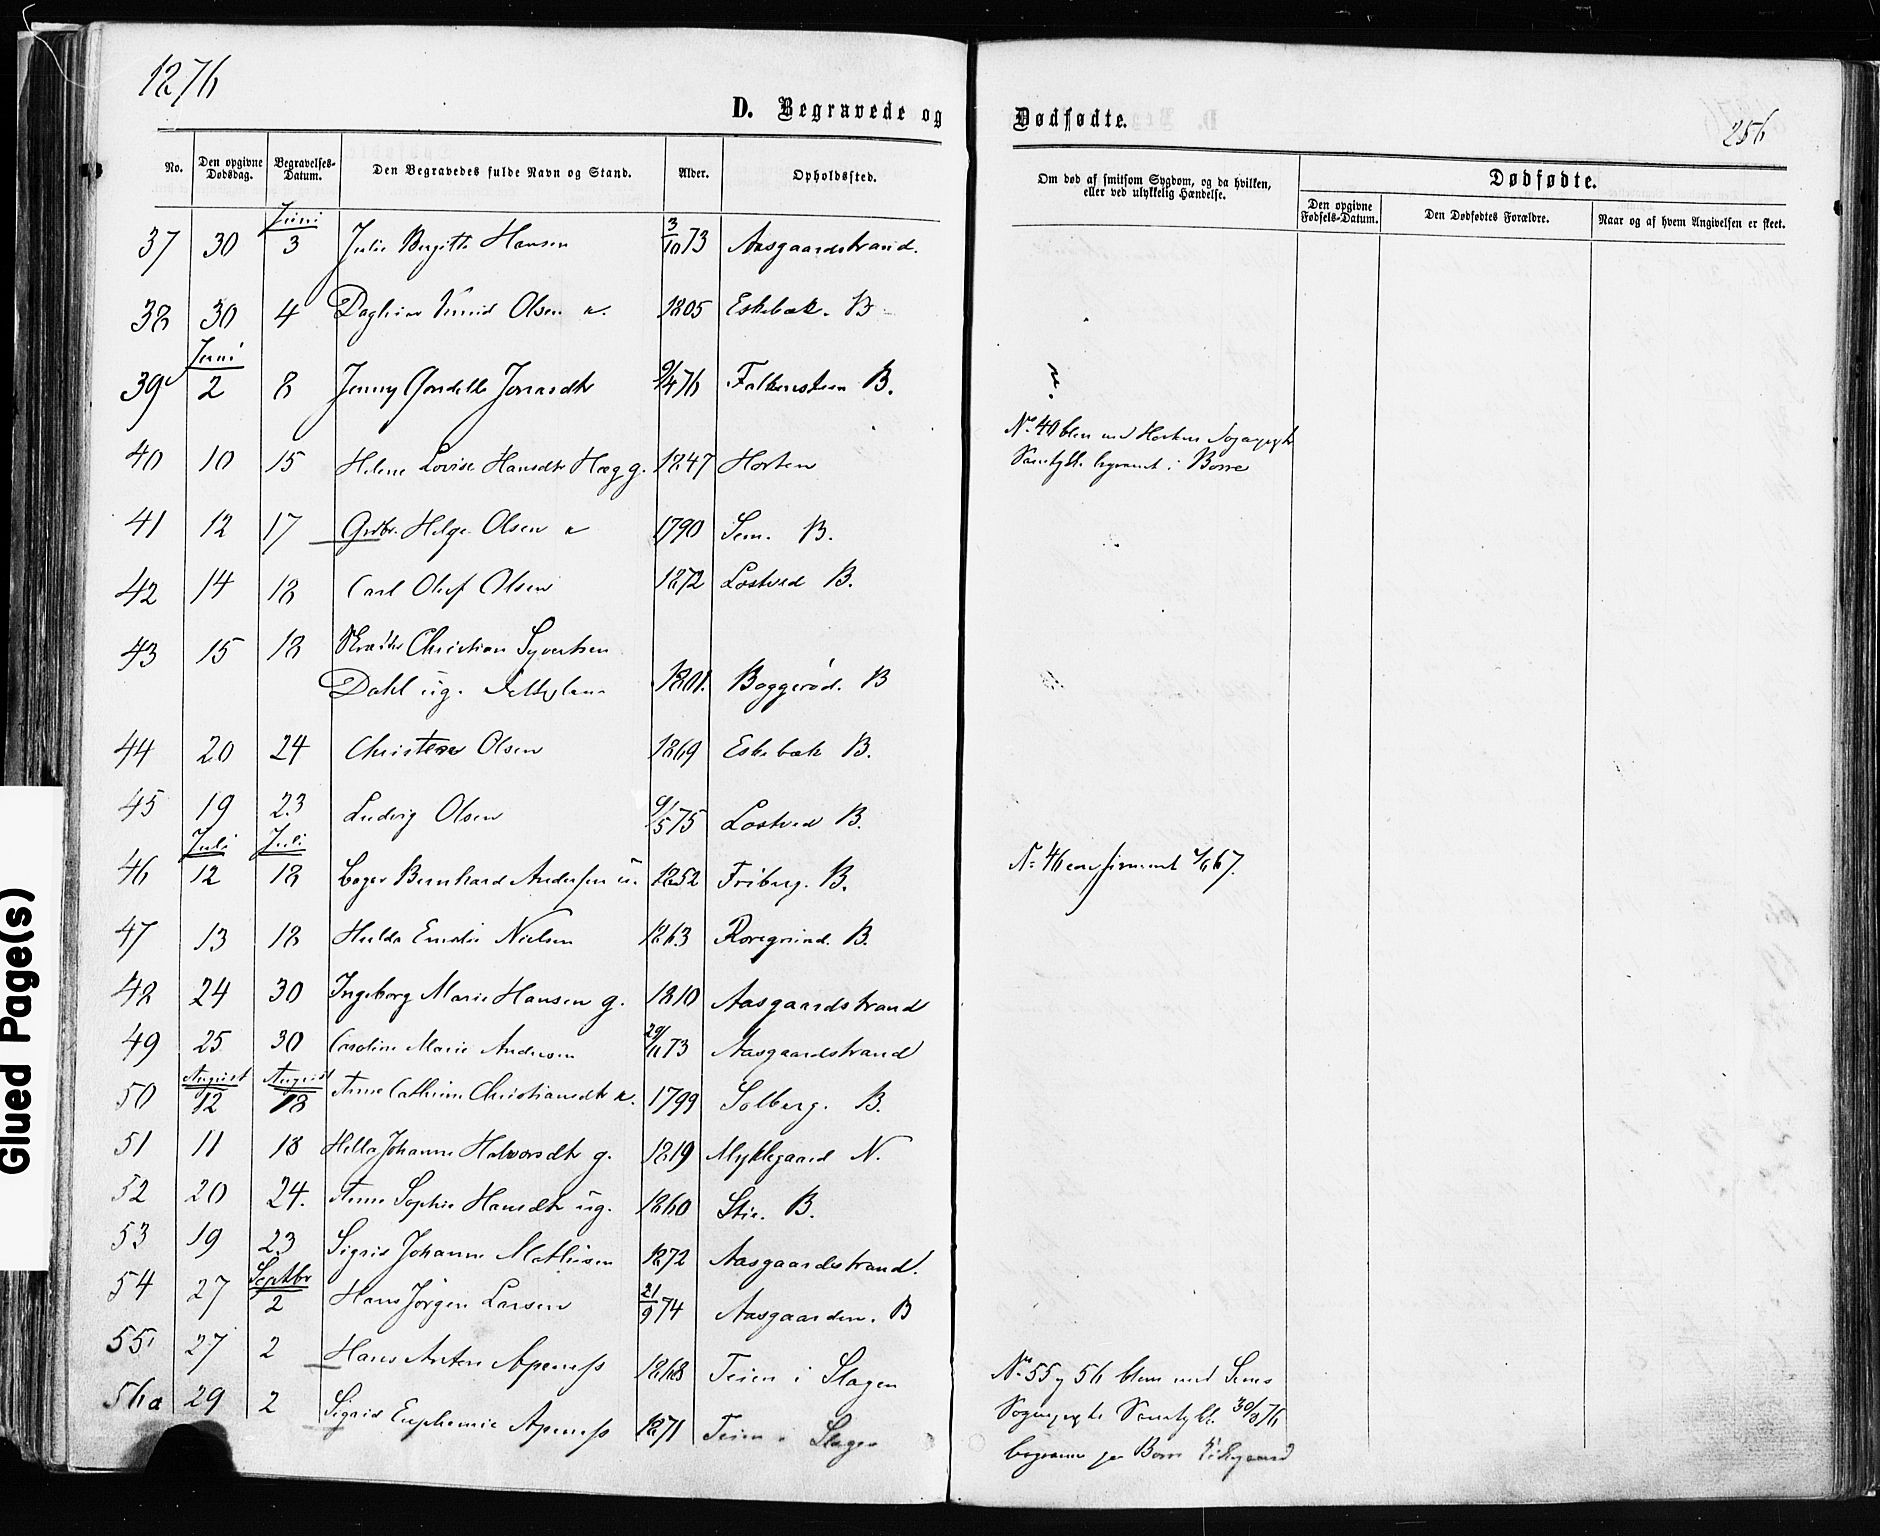 1876
D. Begravede og Dødfødte.
256
No. Den opgivne Dødsdag. Begravelses-Datum. Den Begravedes fulde Navn og Stand. Alder. Opholdssted. Om død af smitsom Sygdom, og da hvilken, eller ved ulykkelig Hændelse. Dødfødte.
Den opgivne Fødsels-Datum. Den Dødfødtes Forældre. Naar og af hvem Angivelsen er skeet.
Juni
37 30 3 Julie Birgitte Hansen 3/10 73 Aasgaardstrand.
38 30 4 Olsen e. 1805 Eskebæk. B
Juni
39 2 8 Jenny 9/4 76 Falkensteen B. ?
40 10 15 Helene Lovise Hansdtr Hægg. 1847 Horten
No. 40 blev med Hortens Sognepr. Samtykke begravet i Borre
41 12 17 Grdbr. Helge Olsen e 1790 Sem. B.
42 14 18 Carl Oluf Olsen 1872 Lostved B.
43 15 18 Christian Syvertsen
Dahl ug. 1801. Boggerød. B
44 20 24 Olsen 1869 Eskebæk B.
45 19 23 Ludvig Olsen 9/5 75 Lostved B.
Juli Juli
46 12 18 Bernhard Andersen u. 1852 Friberg. B.
No. 46 confirmeret 67.
47 13 18 Hulda Emilie Nielsen 1863 Roregrind. B.
48 24 30 Ingeborg Marie Hansen g. 1810 Aasgaardstrand
49 25 30 Caroline Marie Andersen 29/11 73 Aasgaardstrand
August August
50 12 18 Anne Cathrine Christiansdtr e. 1799 Solberg. B.
51 11 18 Hella Johanne Halvorsdtr g. 1819 Myklegaard N.
52 20 24. Anne Sophie Hansdtr ug. 1860 Stie. B.
53 19 23 Sigrid Johanne Mathisen 1872 Aasgaardstrand.
Septbr
54 27 2 Hans Jörgen Larsen 21/9 74 Aasgaarden. B
55 27 2 Hans Anton Apeness 1868 Teien i Slagen
56a 29 2 Sigrid Euphemie Apeness 1871 Teien i Slagen
No. 55 og 56 bleve med Sems
Sognepr. Samtykke 30/8 76
begravne paa Borre Kirkegaard
Glued Page(s)